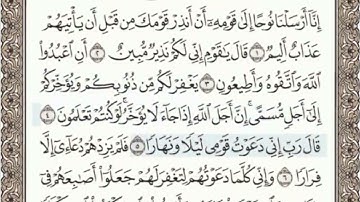 إِنَّا أَرْسَلْنَا نُوحًا إِلَىٰ قَوْمِهِ أَنْ أَنذِرْ قَوْمَكَ مِن قَبْلِ أَن يَأْتِيَهُمْ
عَذَابٌ أَلِيمٌ ١ قَالَ يَٰقَوْمِ إِنِّي لَكُمْ نَذِيرٌ مُّبِينٌ ٢ أَنِ ٱعْبُدُواْ
ٱللَّهَ وَٱتَّقُوهُ وَأَطِيعُونِ ٣ يَغْفِرْ لَكُم مِّن ذُنُوبِكُمْ وَيُؤَخِّرْكُمْ
إِلَىٰ أَجَلٍ مُّسَمًّى إِنَّ أَجَلَ ٱللَّهِ إِذَا جَآءَ لَا يُؤَخَّرُ لَوْ كُنتُمْ تَعْلَمُونَ ٤
قَالَ رَبِّ إِنِّي دَعَوْتُ قَوْمِي لَيْلًا وَنَهَارًا ٥ فَلَمْ يَزِدْهُمْ دُعَآءِي إِلَّا
فِرَارًا ٦ وَإِنِّي كُلَّمَا دَعَوْتُهُمْ لِتَغْفِرَ لَهُمْ جَعَلُوٓاْ أَصَٰبِعَهُمْ فِيٓ